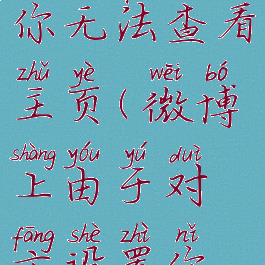 你无法查看
zhǔ yè wēi bó
主页(微博
shàng yóu yú duì
上由于对
fāng shè zhì nǐ
方设置你